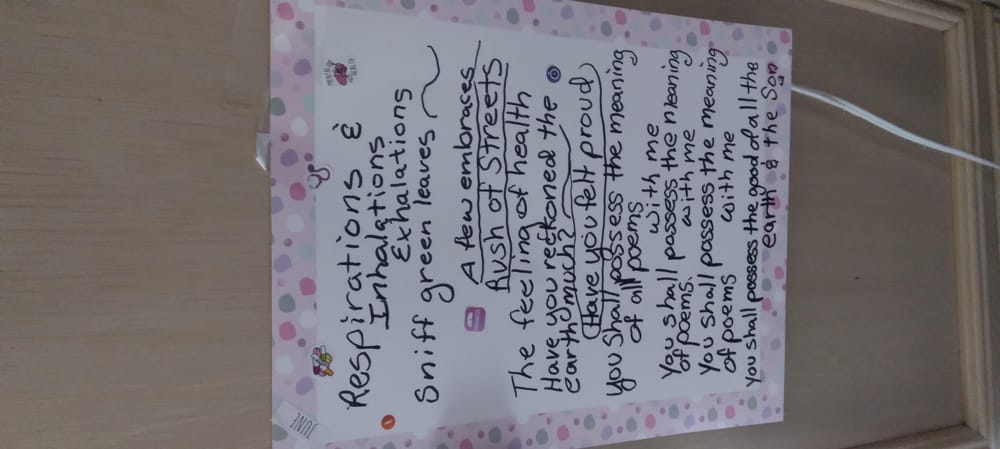 JUNE
Respirations &
Inhalations &
Exhalations
Sniff green leaves
A few embraces
Rush of Streets
The feeling of health
Have you reckoned the
earth much?
Have you felt proud
you Shall possess the meaning
of all poems
with me
You shall possess the meaning
of poems. with me
You shall possess the meaning
of poems with me
You shall possess the good of all the
earth & the Son